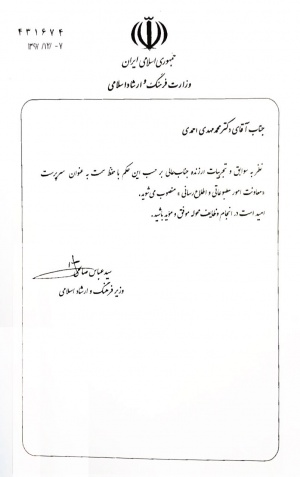 ۴۳۱۶۷۴
۱۳۹۷/۱۲/۰۷
جمهوری اسلامی ایران
وزارت فرهنگ و ارشاد اسلامی
جناب آقای دکتر محمد مهدی احمدی
نظر به سوابق و تجربیات ارزنده جناب‌عالی بر حسب این حکم با حفظ سمت به عنوان سرپرست
«معاونت امور مطبوعاتی و اطلاع‌رسانی» منصوب می‌شوید.
امید است در انجام وظایف محوله موفق و موید باشید.
سید عباس صالحی
وزیر فرهنگ و ارشاد اسلامی